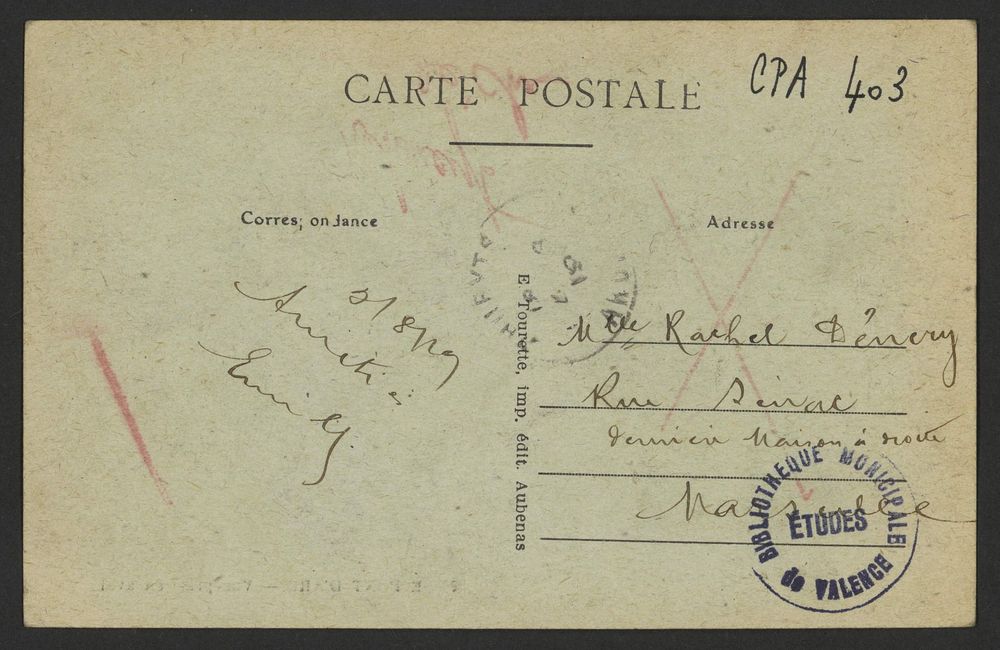 CARTE POSTALE
CPA 403
Correspondance
Adresse
2/8/19
Amitiés
Emily
E Tourette, imp. édit. Aubenas
Mlle Rachel Dénery
Rue Sénac
dernière Maison à droite
Marseille
BIBLIOTHEQUE MUNICIPALE
ÉTUDES
de VALENCE